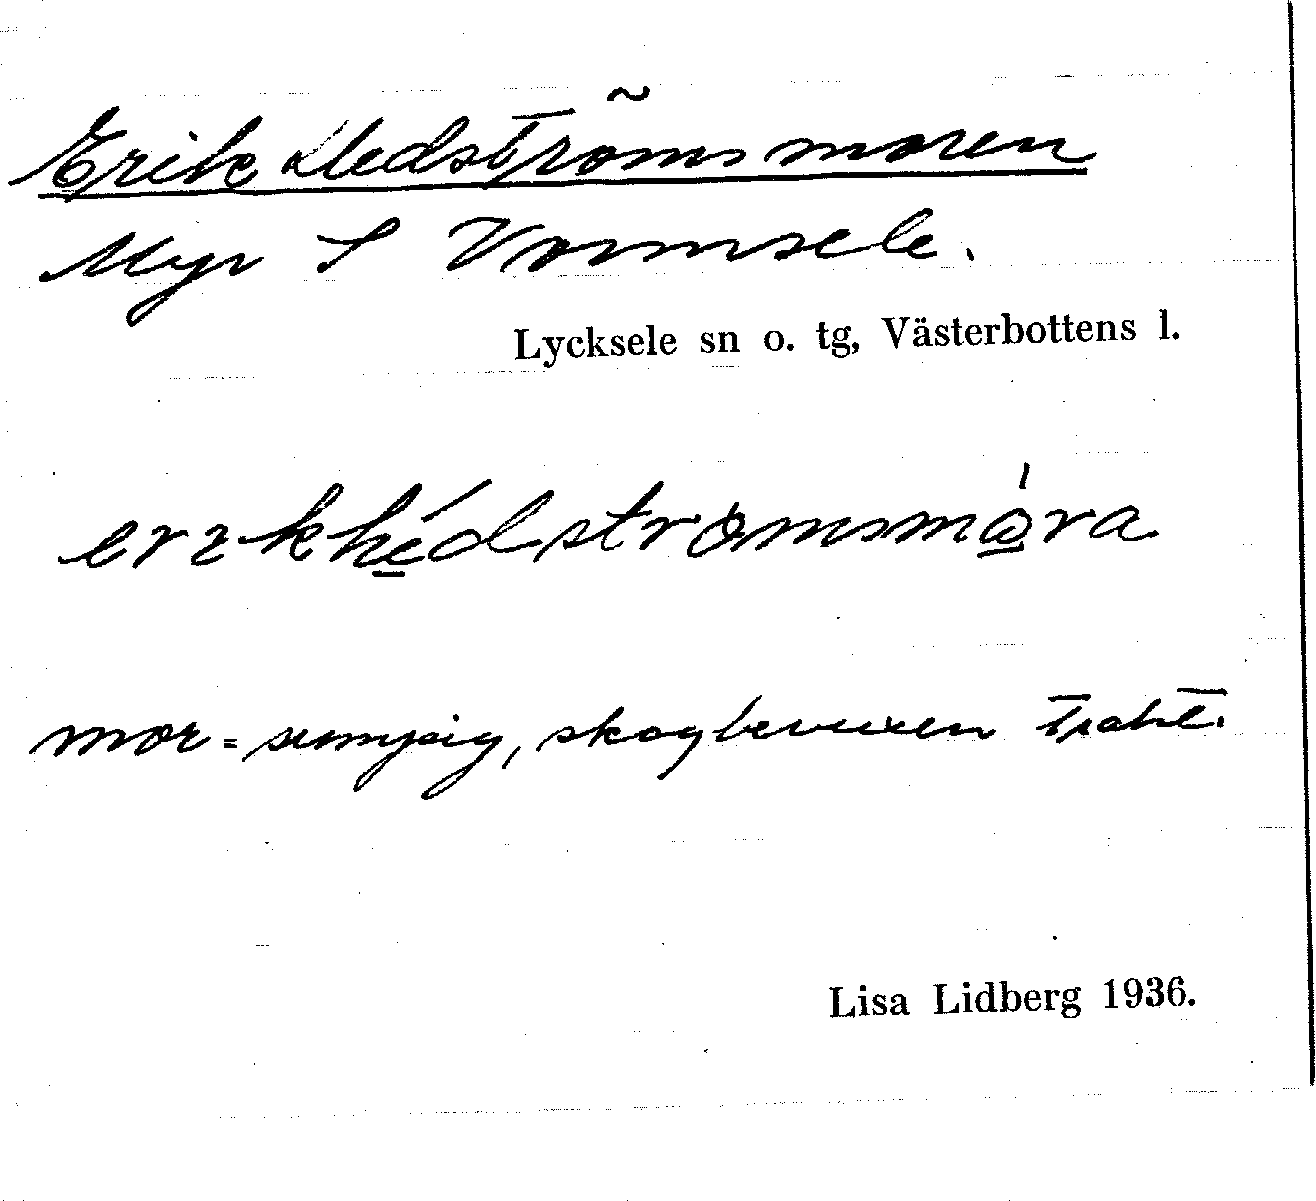 Erik Hedströmsmoren
Myr S Vormsele.
Lycksele sn o. tg, Västerbottens l.
erɩkhédstrømsmǫ́ra
mor = sumpig, skogbevuxen trakt.
Lisa Lidberg 1936.